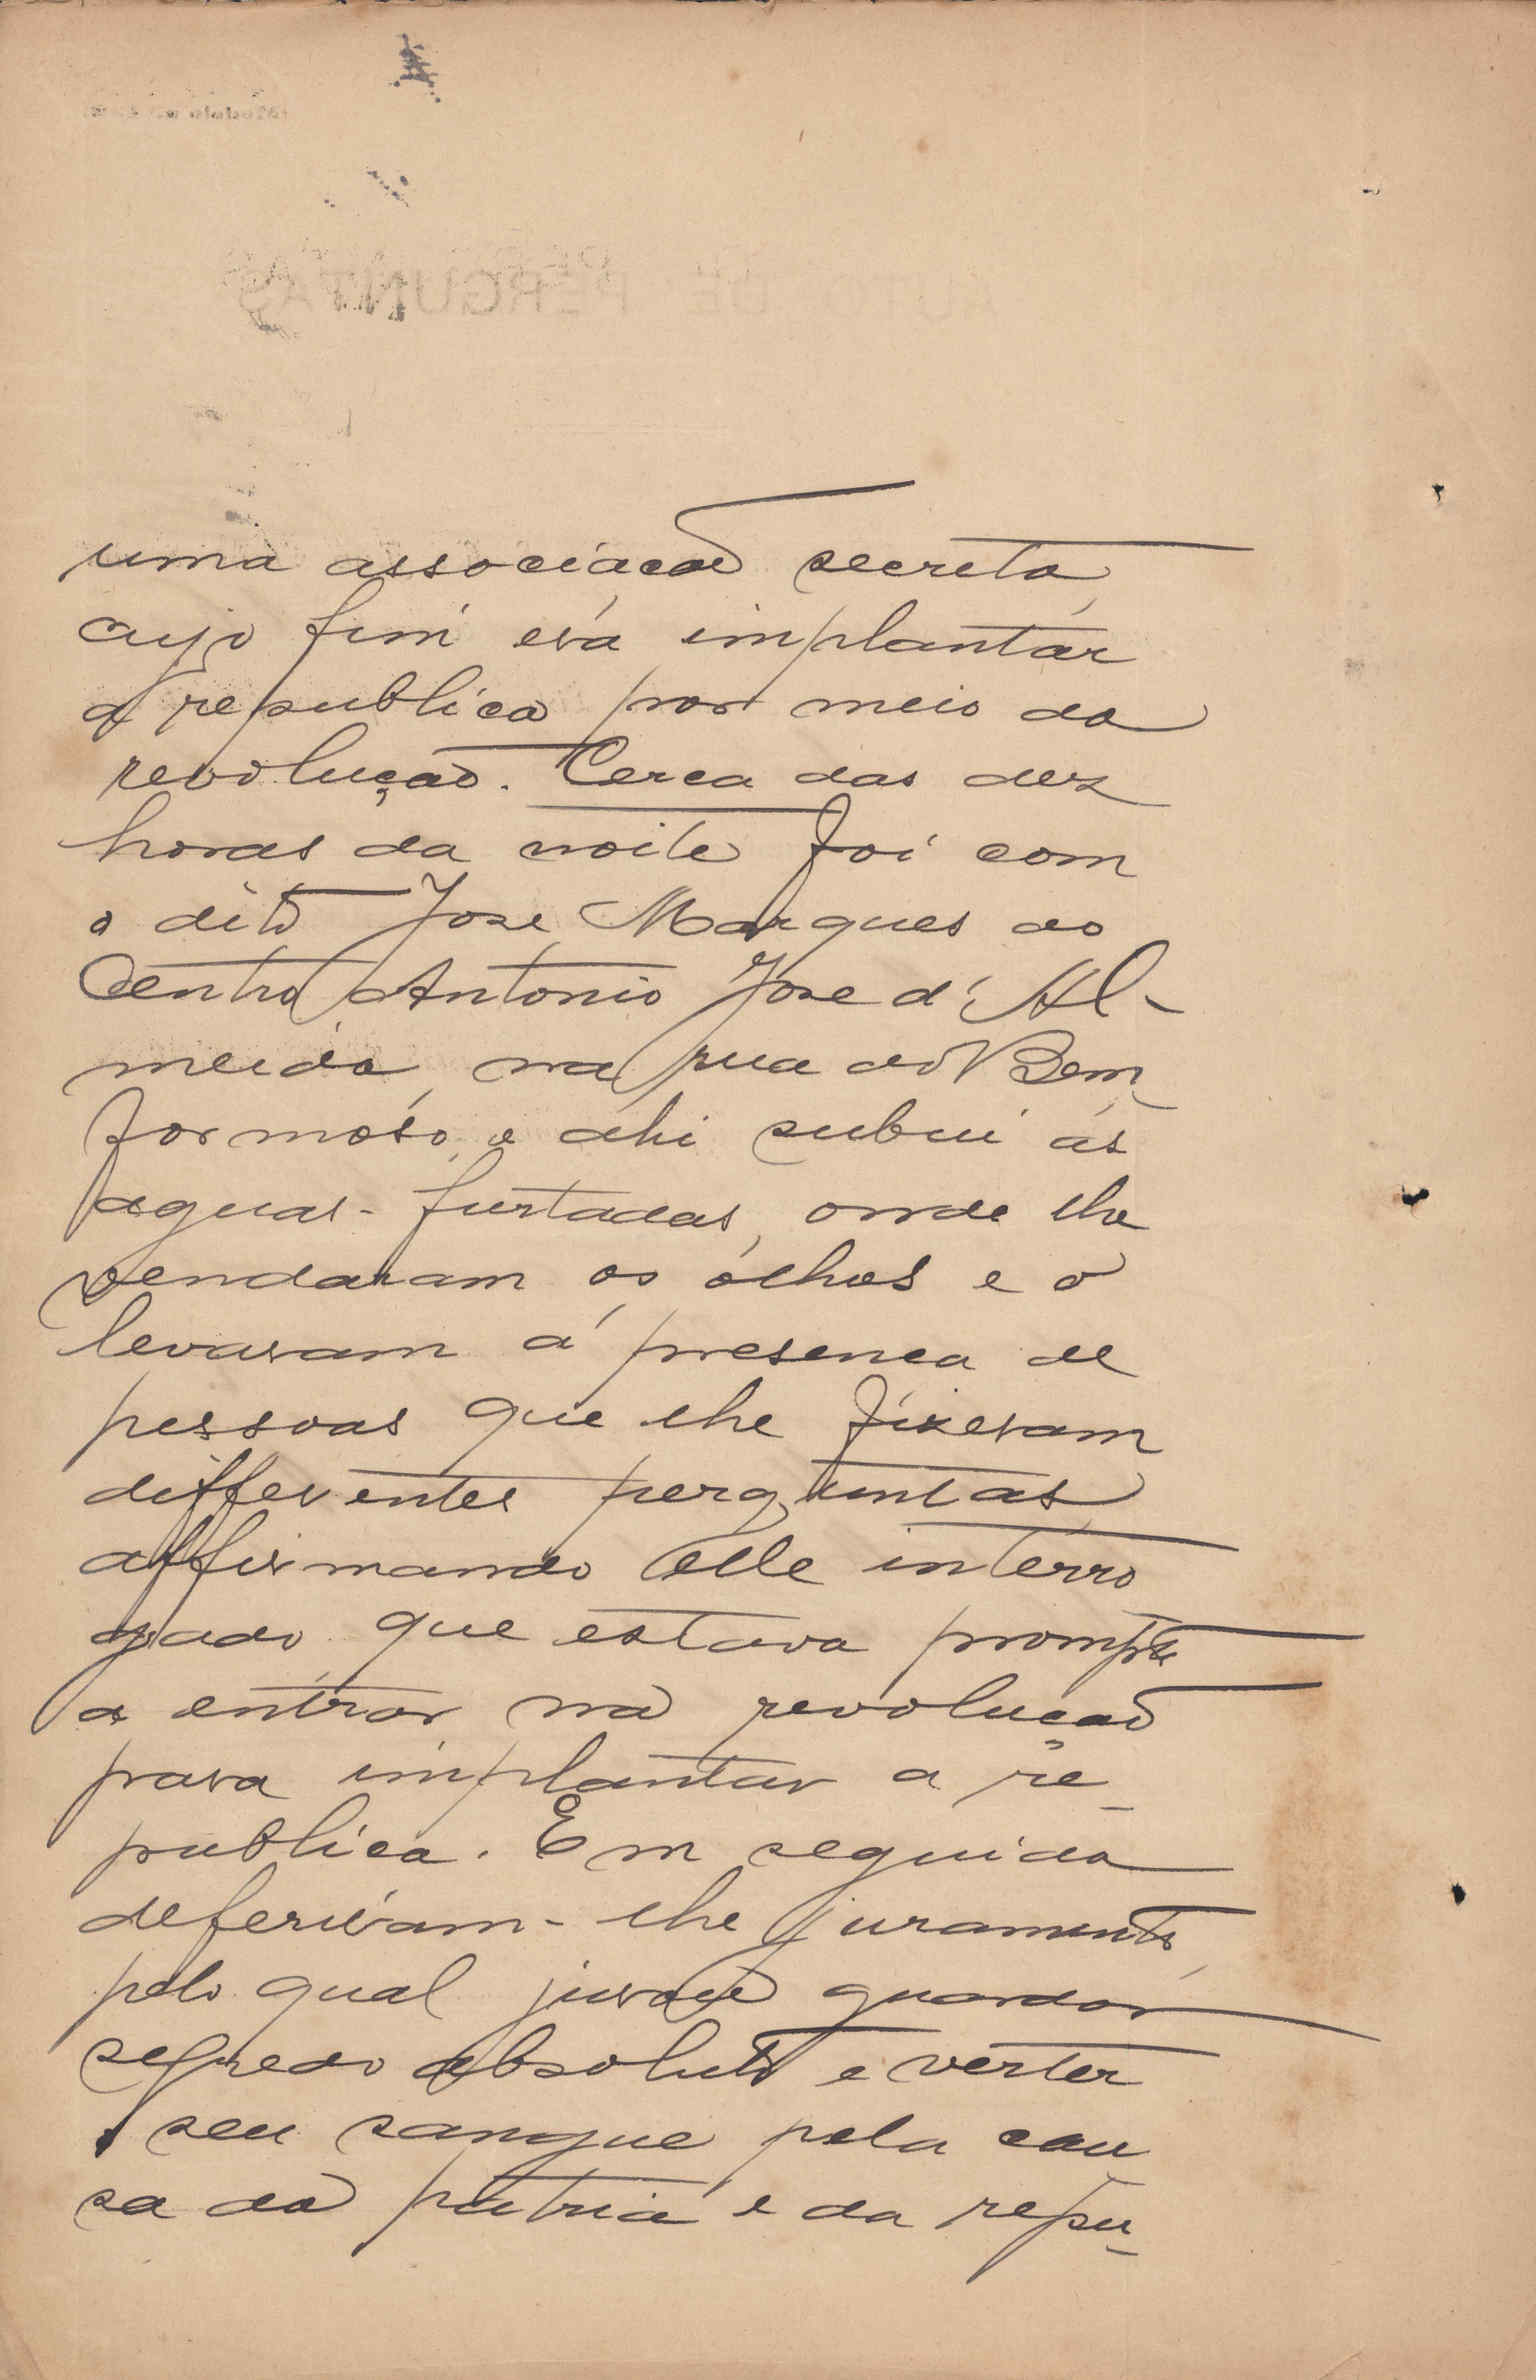 uma associacao secreta,
cujo fim era implantar
a republica por meio da
revolução. Cerca das dez
horas da noite foi com
o dito Jose Marques ao
Centro Antonio Jose d'Al-
meida, na rua do Bem
formóso, e ahi subiu ás
aguas-furtadas, onde lhe
vendaram os olhos e o
levaram á presenca de
pessoas que lhe fizeram
differentes perguntas,
affirmando elle interro
gado que estava prompto
a entrar na revolução
para implantar a re-
publica. Em seguida
deferiram-lhe juramento,
pelo qual jurou guardar
segredo absoluto e verter
o seu sangue pela cau
sa da patria e da repu-